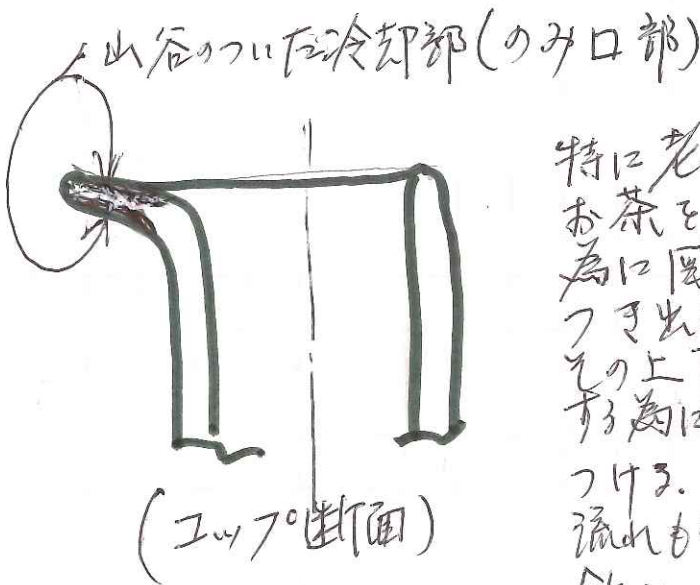 山谷のついた冷却部(のみ口部)
特に老
お茶を
為に図
つき出
その上
する為に
つける.
流れも
(コップ断面)